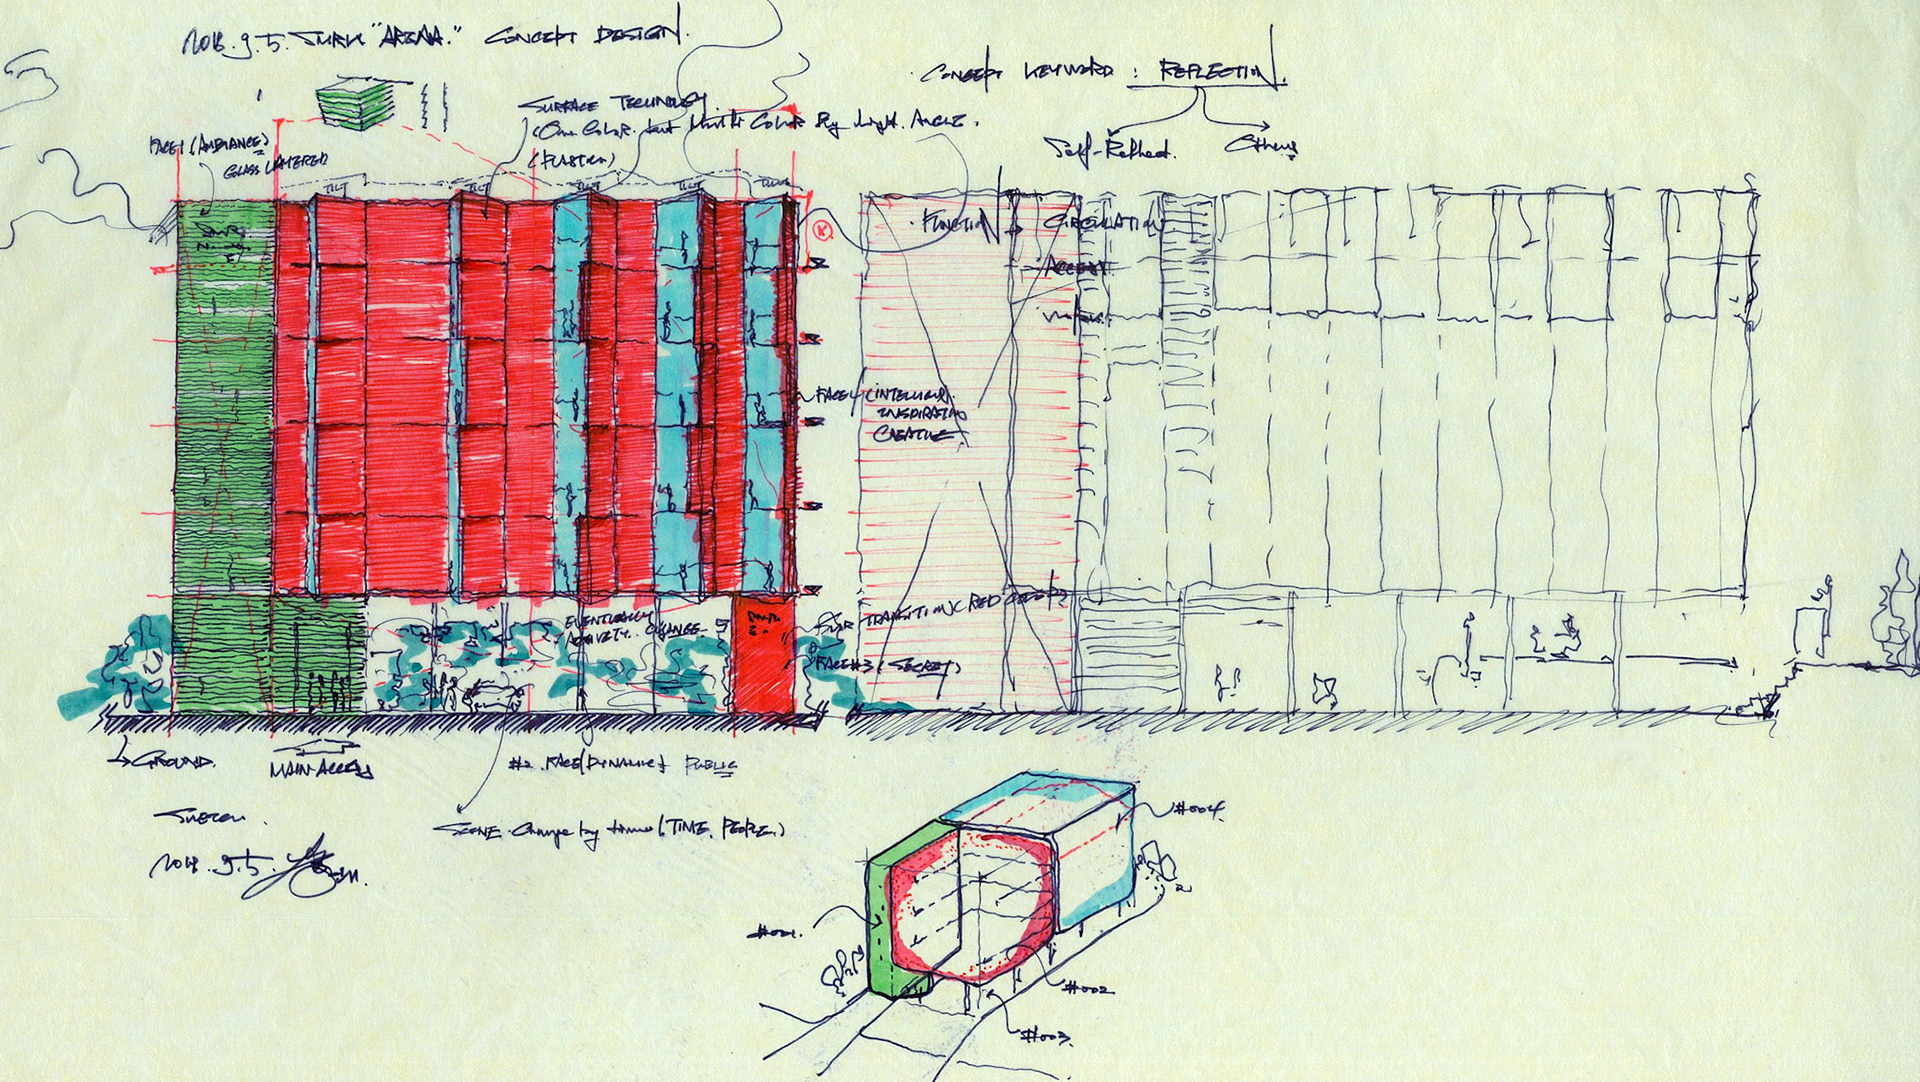 2018. 9. 5. "ARENA." CONCEPT DESIGN.
CONCEPT KEYWORD : REFLECTION.
Self-Reflect. Others
SURFACE TECHNOLOGY.
(One Color. but Multi Color By Light. Angle.
FACE 1 (AMBIANCE)
GLASS LAYERED
TILT TILT TILT TILT
FUNCTION CIRCULATION
ACCESS
K
FACE 4 (INTELLIGENT.
INSPIRATION
CREATIVE.
EVENTUALLY
ACTIVITY.. CHANGE
TRANSITION (RED
FACE #3 (SECRET)
GROUND.
MAIN ACCESS
#2. FACE (DYNAMIC) PUBLIC
SCENE. Change by time (TIME. PEOPLE.)
2018. 9. 5.
#004.
#001.
#002.
#003.